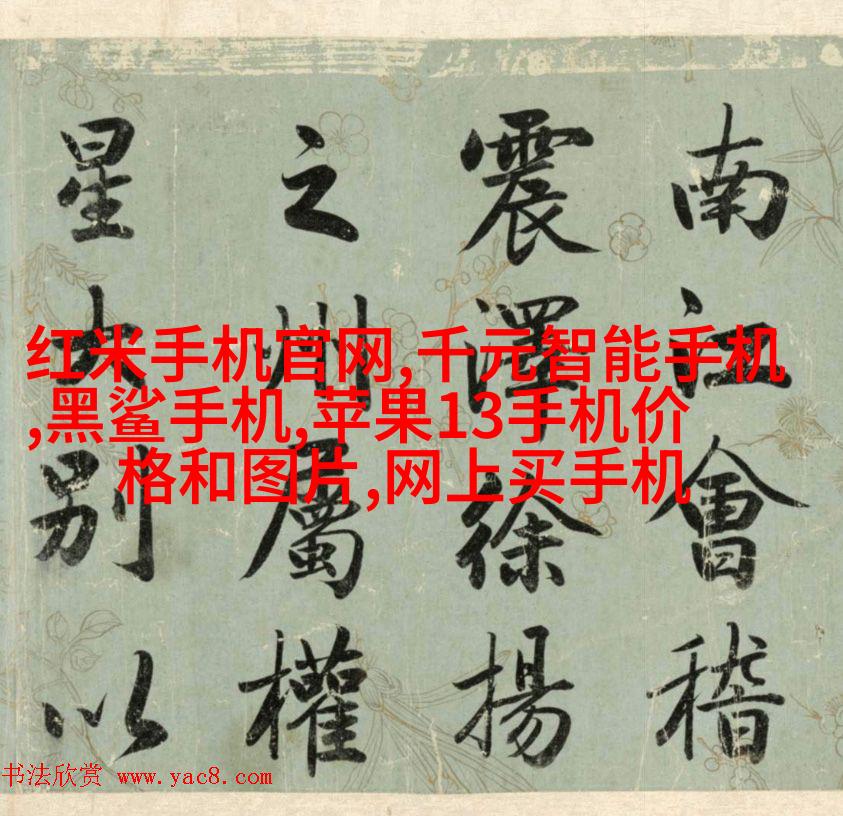 南江會稽
震澤徐揚
之州屬權
星別以
红米手机官网,千元智能手机
,黑鲨手机,苹果13手机价
格和图片,网上买手机
书法欣赏 www.yac8.com